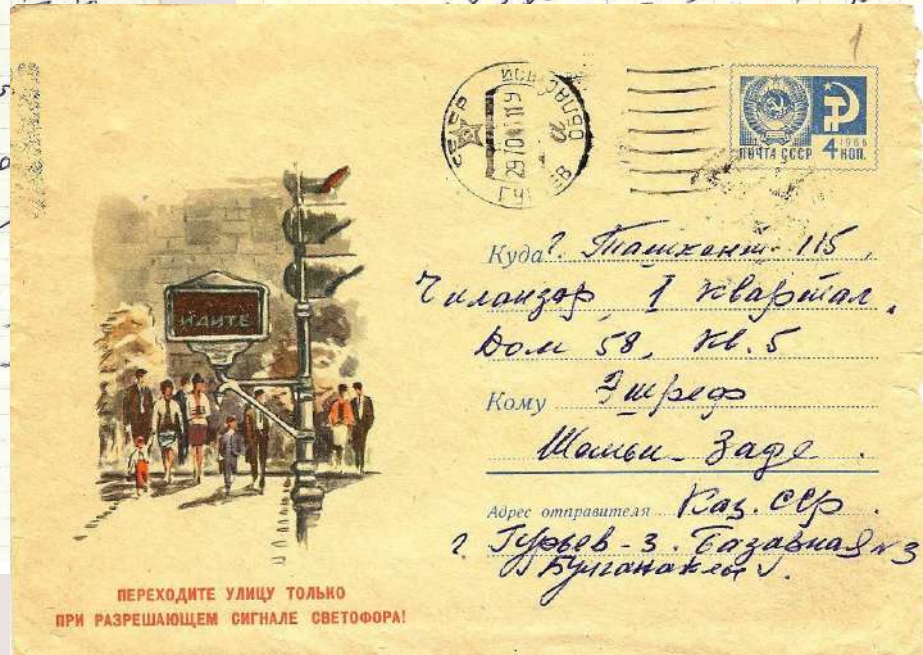 1
ПОЧТА СССР 4 1966 КОП.
29 70
ИДИТЕ
Куда г. Ташкент 115,
Чиланзар, 1 квартал,
Дом 58, кв. 5
Кому Эшреф
Шамьи-Заде.
Адрес отправителя Каз. ССР.
г. Гурьев-3. Базавная №3
ПЕРЕХОДИТЕ УЛИЦУ ТОЛЬКО
ПРИ РАЗРЕШАЮЩЕМ СИГНАЛЕ СВЕТОФОРА!